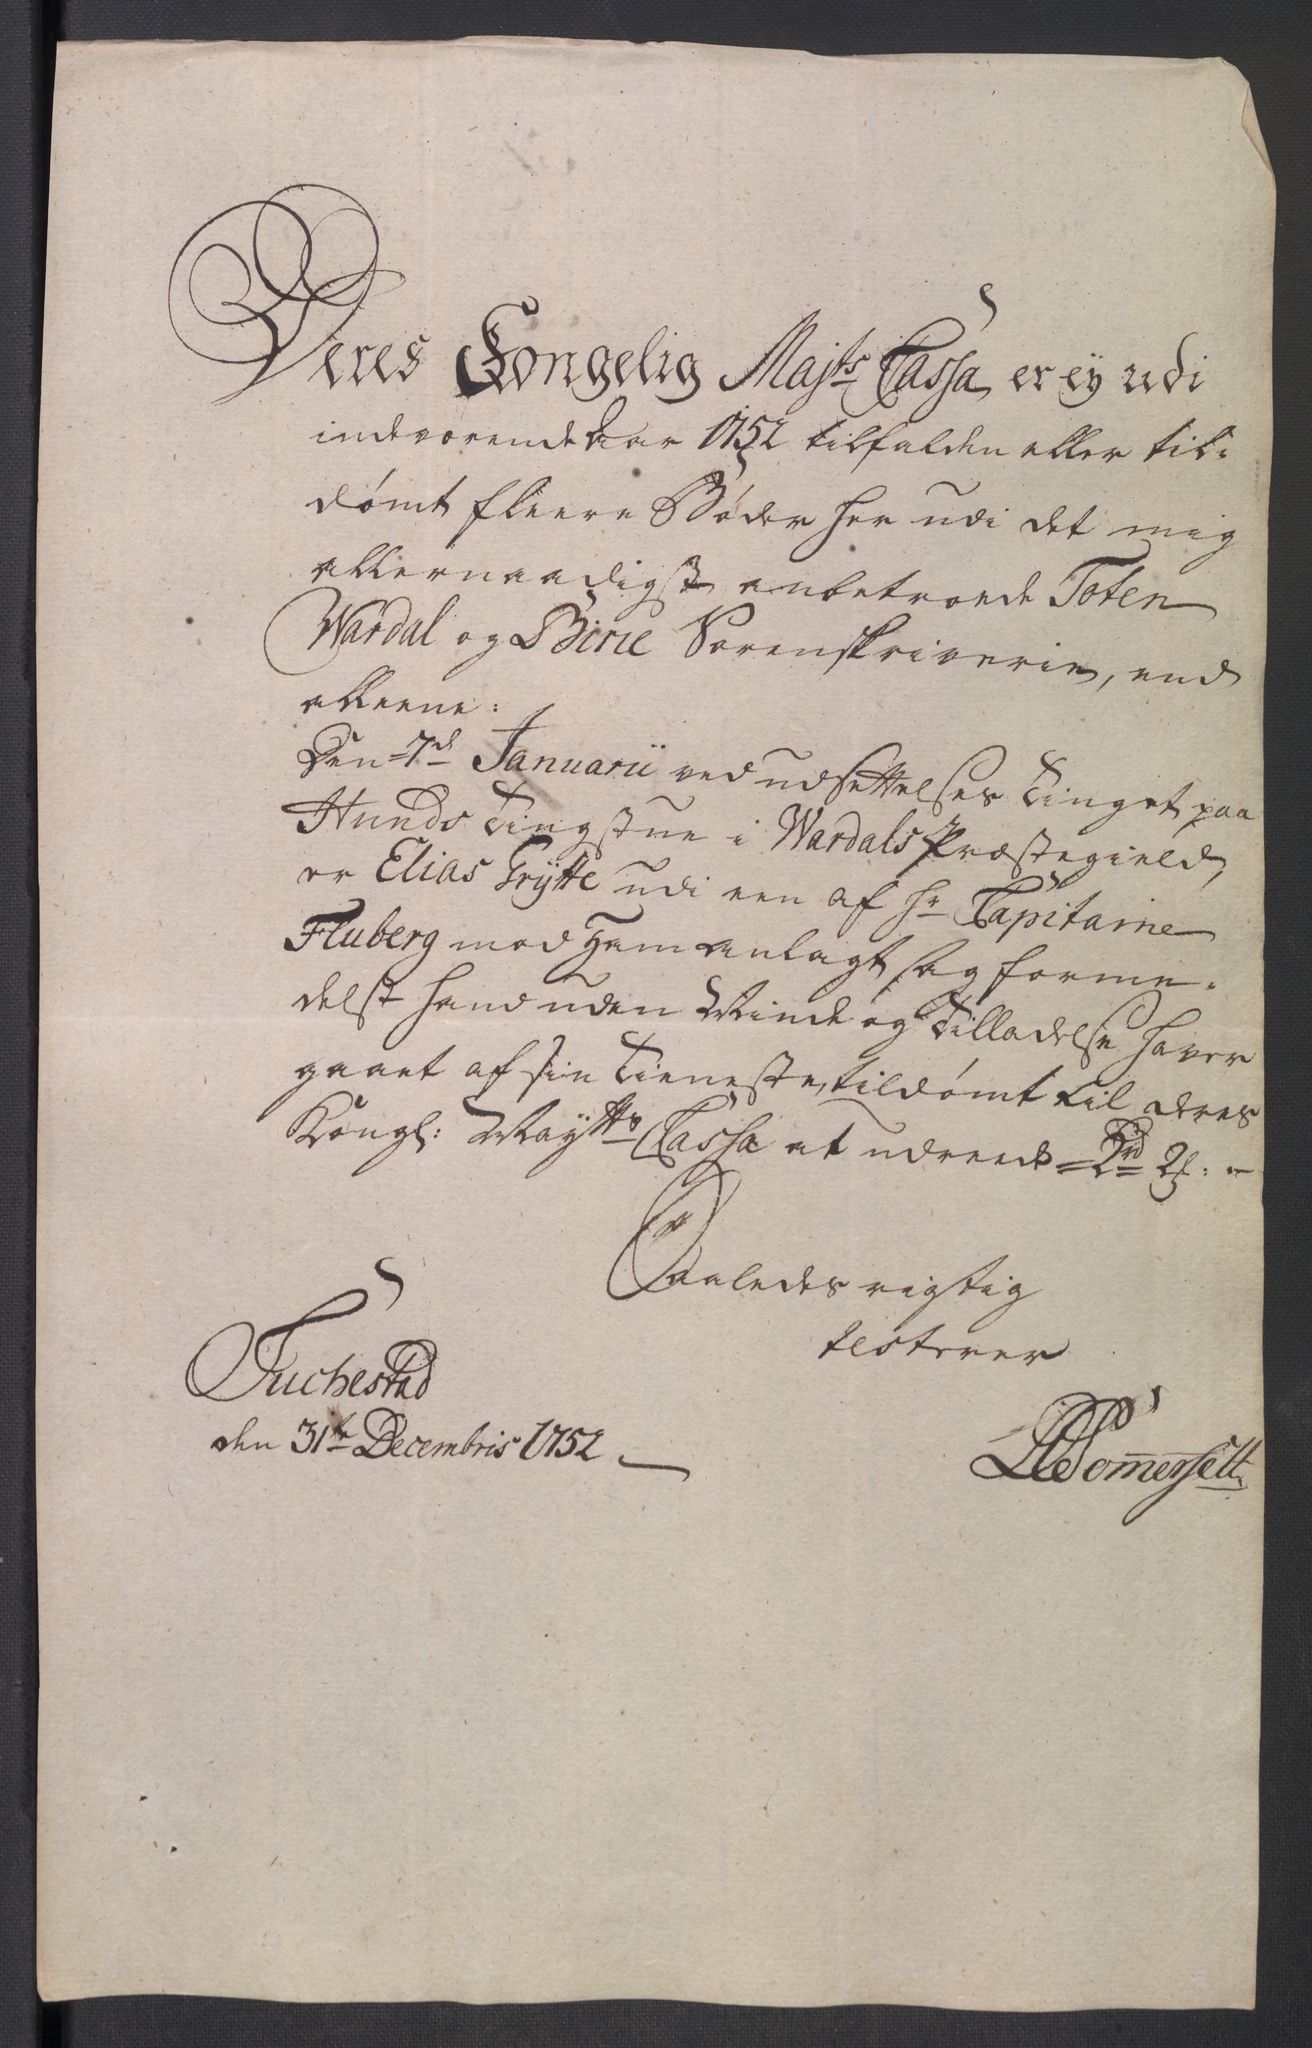 Deres Kongelig Majts Cassa er ey udi
indeværende Aar 1752 tilfalden eller til:
dømt fleere Bøder her udi det mig
allernaadigst anbetroede Toten
Wardal og Birie Sorenskriverie, end
alleene:
Den 7d Januarii ved udsettelses Tinget paa
Hunds Tingstue i Wardals Præstegield,
er Elias Grÿtte udi een af Hr Capitaine
Fluberg mod Ham anlagt sag forme:
delst hand uden Minde og Tilladelse haver
gaaet af sin Tieneste, tildømt til deres
Kongl: Mayts Cassa at udreede 2rd 2
Saaledes rigtig
testerer
Fuchestad
den 31te Decembris 1752
Somersett